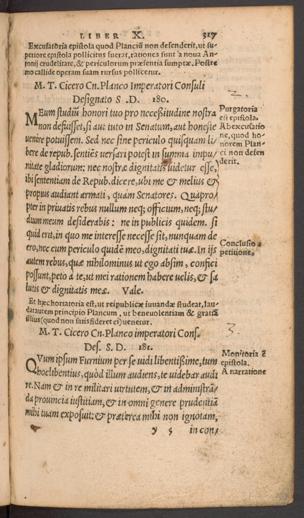 LIBER X. 317
Excusatoria epistola quod Plancus non defenderit, ut su-
periore epistola pollicitus fuerat, rationes sunt à noua An-
tonij crudelitate, & periculorum præsentia sumptæ. Postre
mo callide operam suam rursus pollicetur.
M. T. Cicero Cn. Planco Imperatori Consuli
Designato S. D. 180.
MEum studiũ honori tuo pro necessitudine nostra
non defuisset, si aut tuto in Senatum, aut honeste
venire potuissem. Sed nec sine periculo quisquam li-
bere de repub. sentiẽs versari potest in summa impu-
nitate gladiorum: nec nostræ dignitatis uidetur esse,
ibi sententiam de Repub. dicere, ubi me & melius &
propius audiant armati, quàm Senatores. Quapro-
pter in priuatis rebus nullum neq; officium, neq; stu-
dium meum desiderabis: ne in publicis quidem. si
quid erit, in quo me interesse necesse sit, nunquam de
ero, nec cum periculo quidẽ meo, dignitati tuæ. In ijs
autem rebus, quæ nihilominus ut ego absim, confici
possunt, peto à te, ut mei rationem habere uelis, & sa
lutis & dignitatis meæ. Vale.
Purgatoria
est epistola.
Ab excusatio
ne, quod ho-
norem Plan-
ci non defen
derit.
Conclusio a
petitione.
Et hæc hortatoria est, ut reipublicæ iuuandæ studeat, lau-
datautem principio Plancum, ut beneuolentiam & gratiã
illius (quod non satis fideret ei) uenetur.
M. T. Cicero Cn. Planco imperatori Cons.
Des. S. D. 181.
QVum ipsum Furnium per se uidi libentissime, tum
hoc libentius, quòd illum audiens, te uidebar audi
re. Nam & in re militari uirtutem, & in administrã-
da prouincia iustitiam, & in omni genere prudentiã
mihi tuam exposuit: & præterea mihi non ignotam,
3.
Monitoria ẽ
epistola.
A narratione
y 5 in con-